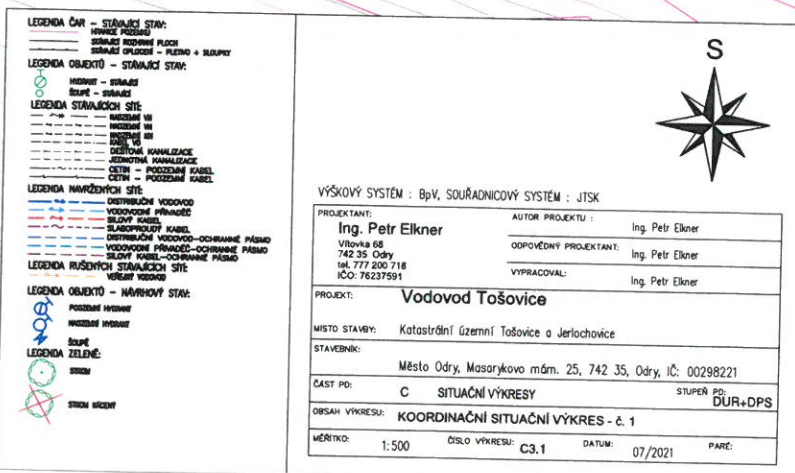 LEGENDA ČAR – STÁVAJÍCÍ STAV:
HRANICE POZEMKU
STÁVAJÍCÍ ROZHRANÍ PLOCH
STÁVAJÍCÍ OPLOCENÍ – PLETIVO + SLOUPKY
LEGENDA OBJEKTŮ – STÁVAJÍCÍ STAV:
HYDRANT – STÁVAJÍCÍ
ŠOUPĚ – STÁVAJÍCÍ
LEGENDA STÁVAJÍCÍCH SÍTÍ:
NADZEMNÍ VN
NADZEMNÍ NN
KABEL VO
DEŠŤOVÁ KANALIZACE
JEDNOTNÁ KANALIZACE
CETIN – PODZEMNÍ KABEL
CETIN – PODZEMNÍ KABEL
LEGENDA NAVRŽENÝCH SÍTÍ:
DISTRIBUČNÍ VODOVOD
VODOVODNÍ PŘIVADĚČ
SILOVÝ KABEL
SLABOPROUDÝ KABEL
DISTRIBUČNÍ VODOVOD-OCHRANNÉ PÁSMO
VODOVODNÍ PŘIVADĚČ-OCHRANNÉ PÁSMO
SILOVÝ KABEL-OCHRANNÉ PÁSMO
LEGENDA RUŠENÝCH STÁVAJÍCÍCH SÍTÍ:
VEŘEJNÝ VODOVOD
LEGENDA OBJEKTŮ – NÁVRHOVÝ STAV:
PODZEMNÍ HYDRANT
NADZEMNÍ HYDRANT
ŠOUPĚ
LEGENDA ZELENĚ:
STROM
STROM KÁCENÝ
S
VÝŠKOVÝ SYSTÉM : BpV, SOUŘADNICOVÝ SYSTÉM : JTSK
PROJEKTANT:
Ing. Petr Elkner
Vítovka 68
742 35 Odry
tel. 777 200 718
IČO: 76237591
AUTOR PROJEKTU : Ing. Petr Elkner
ODPOVĚDNÝ PROJEKTANT: Ing. Petr Elkner
VYPRACOVAL: Ing. Petr Elkner
PROJEKT: Vodovod Tošovice
MÍSTO STAVBY: Katastrální územní Tošovice a Jerlochovice
STAVEBNÍK:
Město Odry, Masarykovo mám. 25, 742 35, Odry, IČ: 00298221
ČÁST PD: C SITUAČNÍ VÝKRESY STUPEŇ PD: DUR+DPS
OBSAH VÝKRESU: KOORDINAČNÍ SITUAČNÍ VÝKRES - č. 1
MĚŘÍTKO: 1:500 ČÍSLO VÝKRESU: C3.1 DATUM: 07/2021 PARÉ: